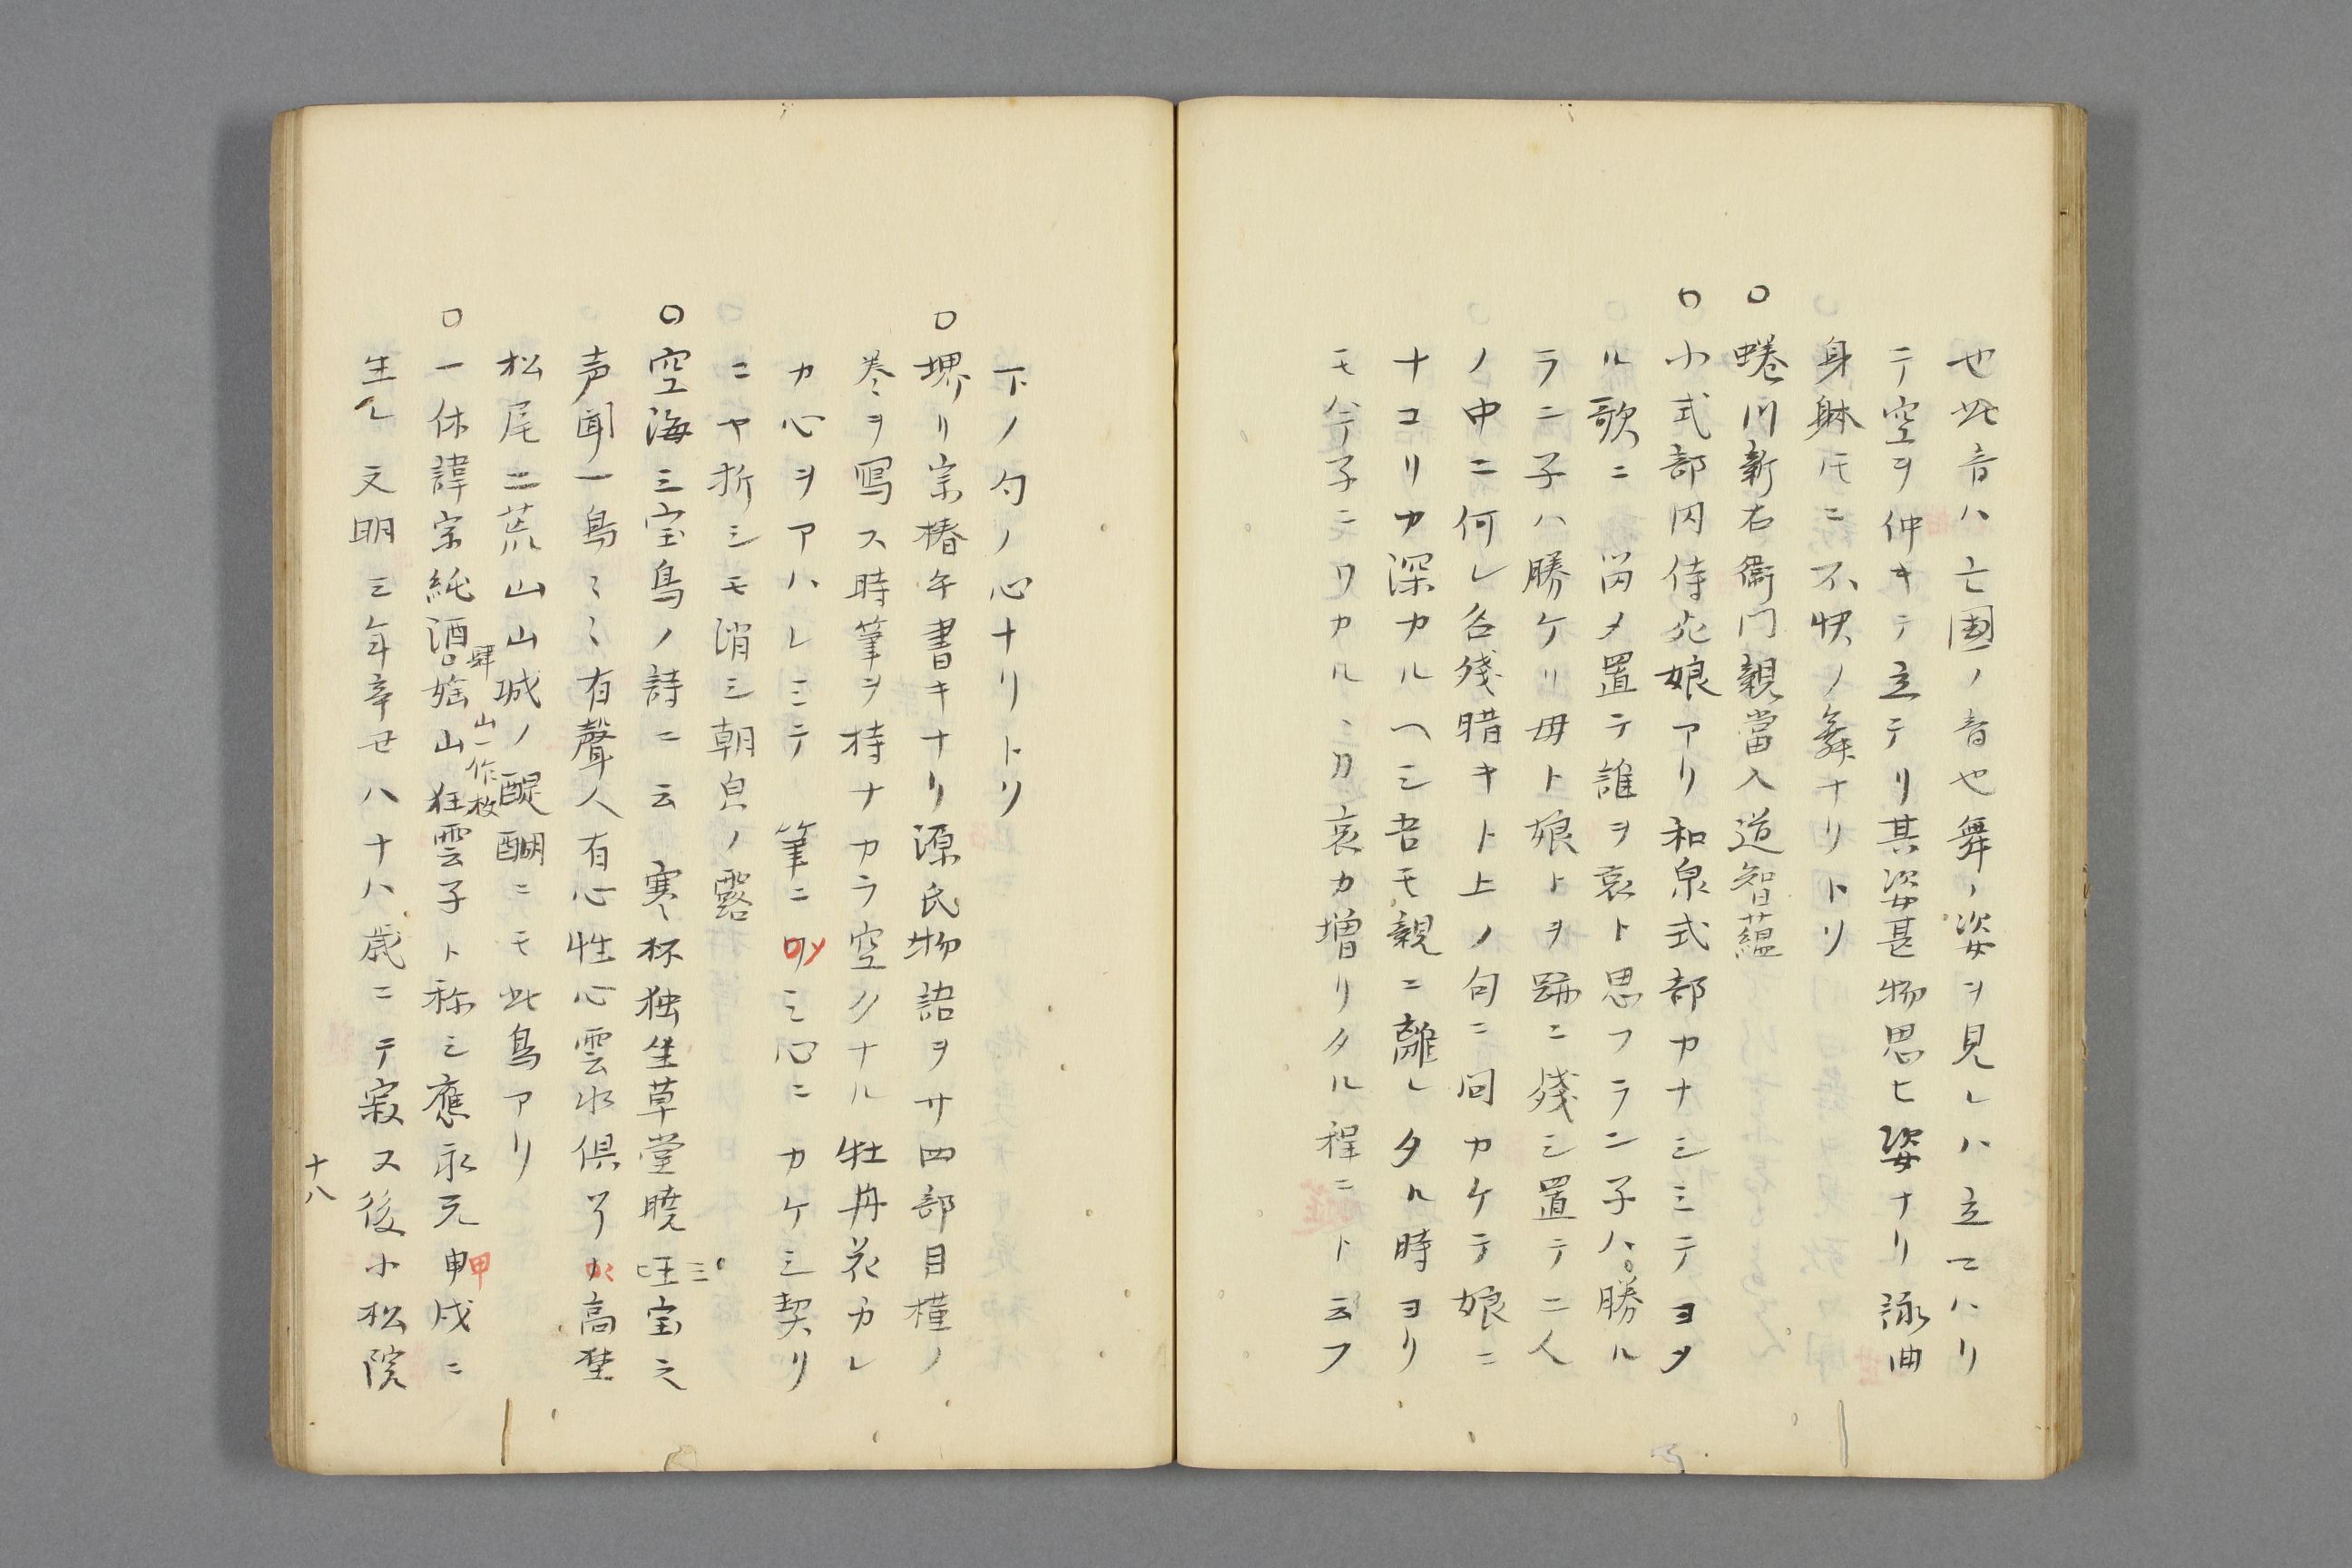 也此音ハ亡國ノ音也舞ノ姿ヲ見レハ立マハリ
テ空ヲ仲キテ立テリ其姿甚物思ヒ姿ナリ詠曲
身躰モニ不快ノ舞ナリトソ
○蜷川新右衛門親當入道智蘊
○小式部内侍死娘アリ和泉式部カナシミテヨメ
ル歌ニ 留メ置テ誰ヲ哀ト思フラン子ハ勝ル
ラニ子ハ勝ケリ母ト娘トヲ跡ニ殘シ置テ二人
ノ中ニ何レ名殘惜キト上ノ句ニ問カケテ娘ニ
ナコリカ深カルヘシ吾モ親ニ離レタル時ヨリ
モ今子ニワカルヽカ哀カ増リタル程ニト云フ
下ノ句ノ心ナリトソ
○堺リ宗椿午書キナリ源氏物語ヲサ四部目槿ノ
巻ヲ寫ス時筆ヲ持ナカラ空クナル牡丹花カレ
カ心ヲアハレミテ 筆ニソミシ心ニカケシ契リ
ニヤ折シモ消シ朝皃ノ露
○空海三宝鳥ノ詩ニ云 寒林独坐草堂暁三宝之
声聞一鳥ミミ有聲人有心性心雲水倶了々高埜
松尾二荒山山城ノ醍醐ニモ此鳥アリ
○一休諱宗純酒肆婬山狂雲子ト称シ應永元甲戌ニ
山一作坊
生レ文明三年辛丑八十八歳ニテ寂ス後小松院
十八